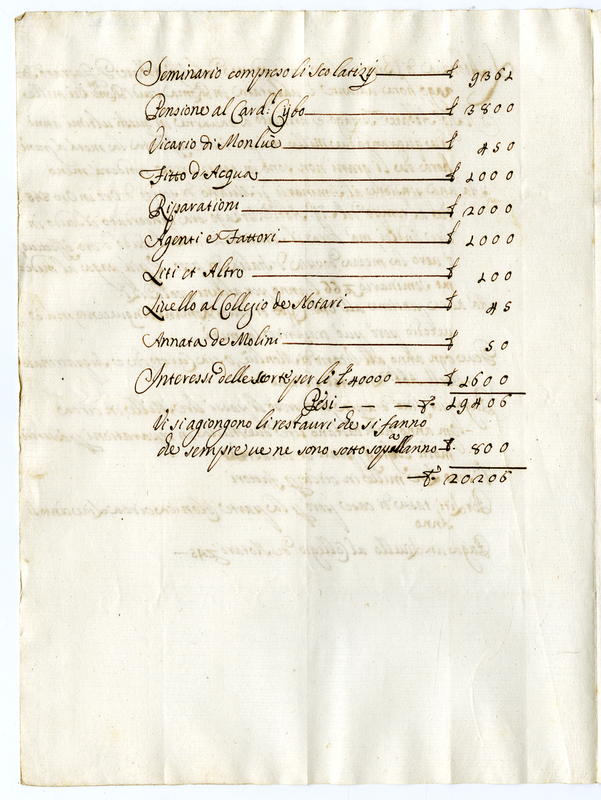 Seminario compreso li Scolatizij £ 9361
Pensione al Card.l Cybo £ 3800
Vicario di Monluè £ 450
Fitto d'Acqua £ 1000
Riparationi £ 2000
Agenti e Fattori £ 1000
Liti et Altro £ 100
Livello al Collegio de Notari £ 45
Annata de Molini £ 50
Interessi delle scorte per li £ 40000 £ 1600
Pesi £ 19406
Vi si agiongono li restauri che si fanno
che sempre ve ne sono sotto sopra all'anno £ 800
£ 20206